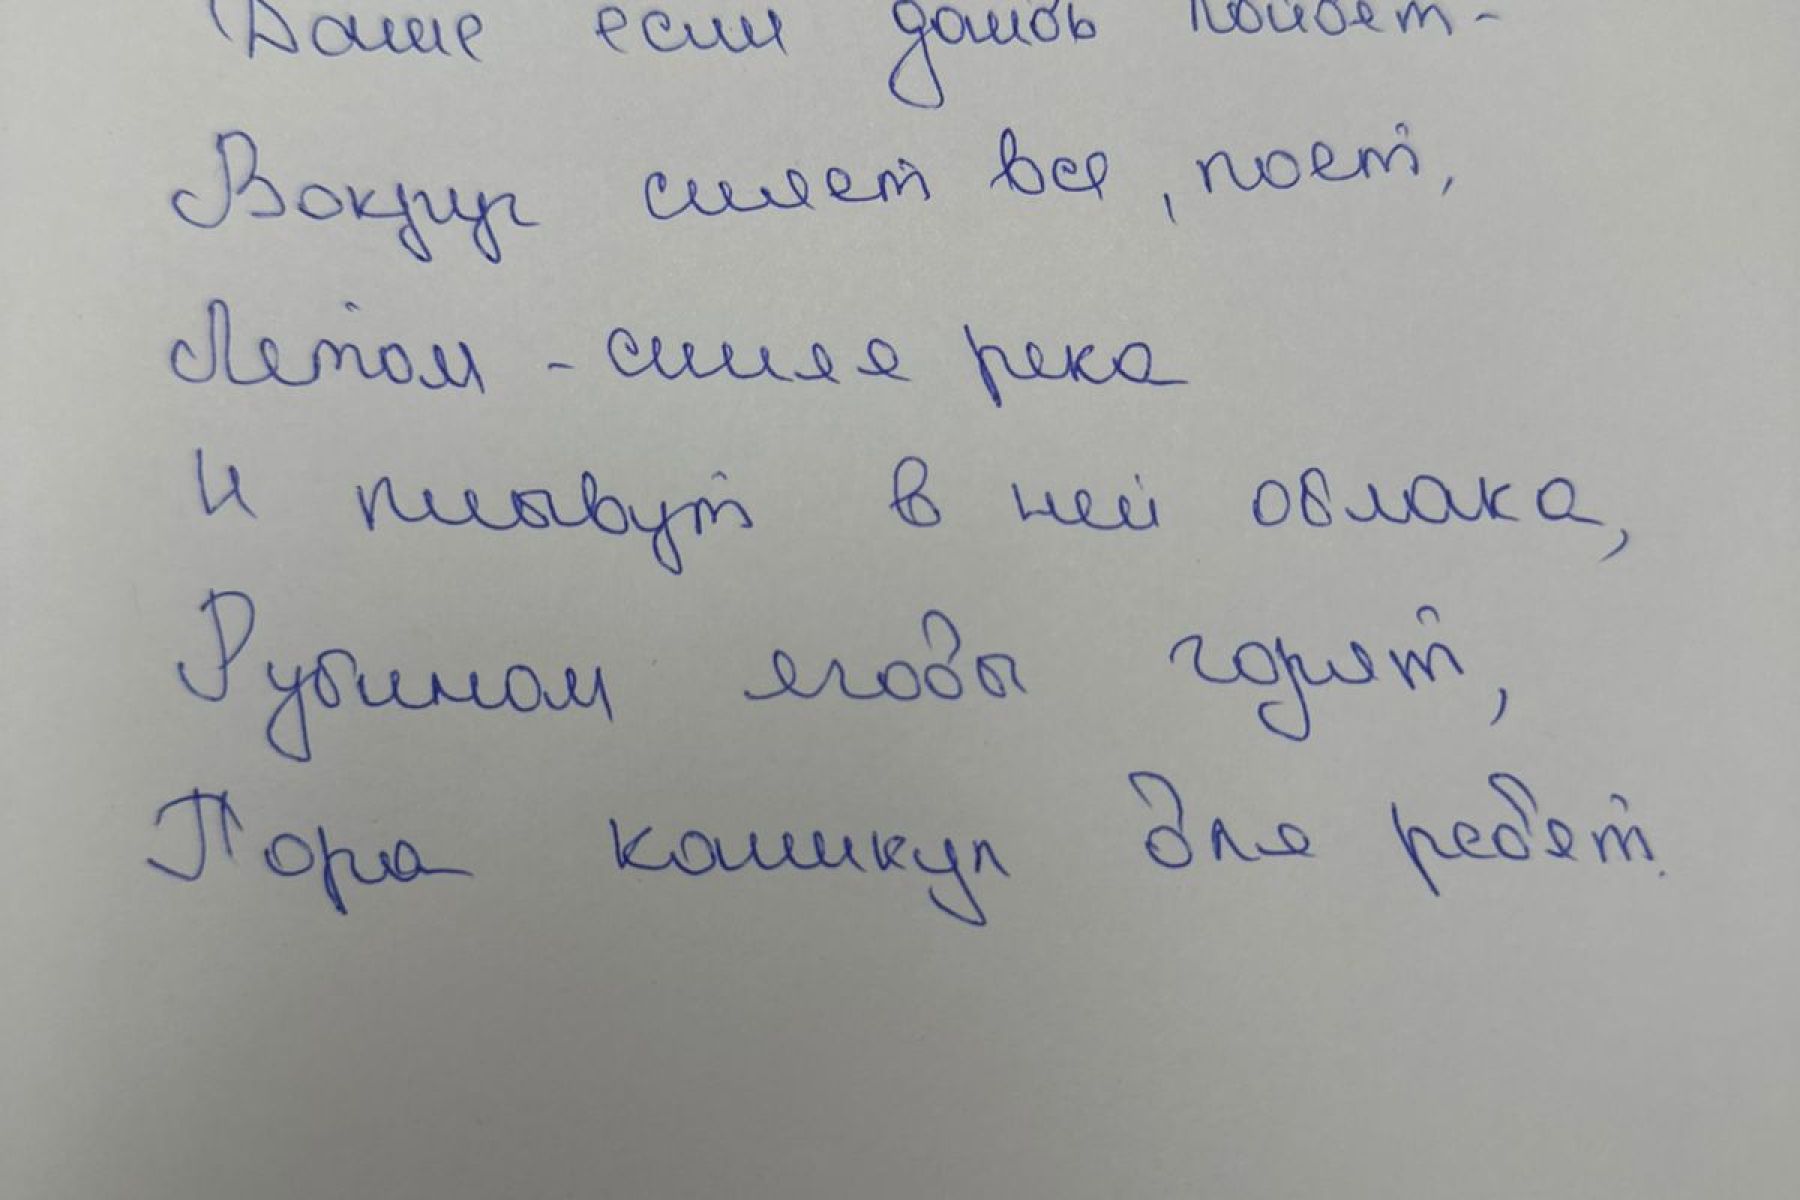 Даже если дождь пойдет -
Вокруг сияет все, поет,
Летом - синяя река
И плывут в ней облака,
Рубином ягоды горят,
Пора каникул для ребят.